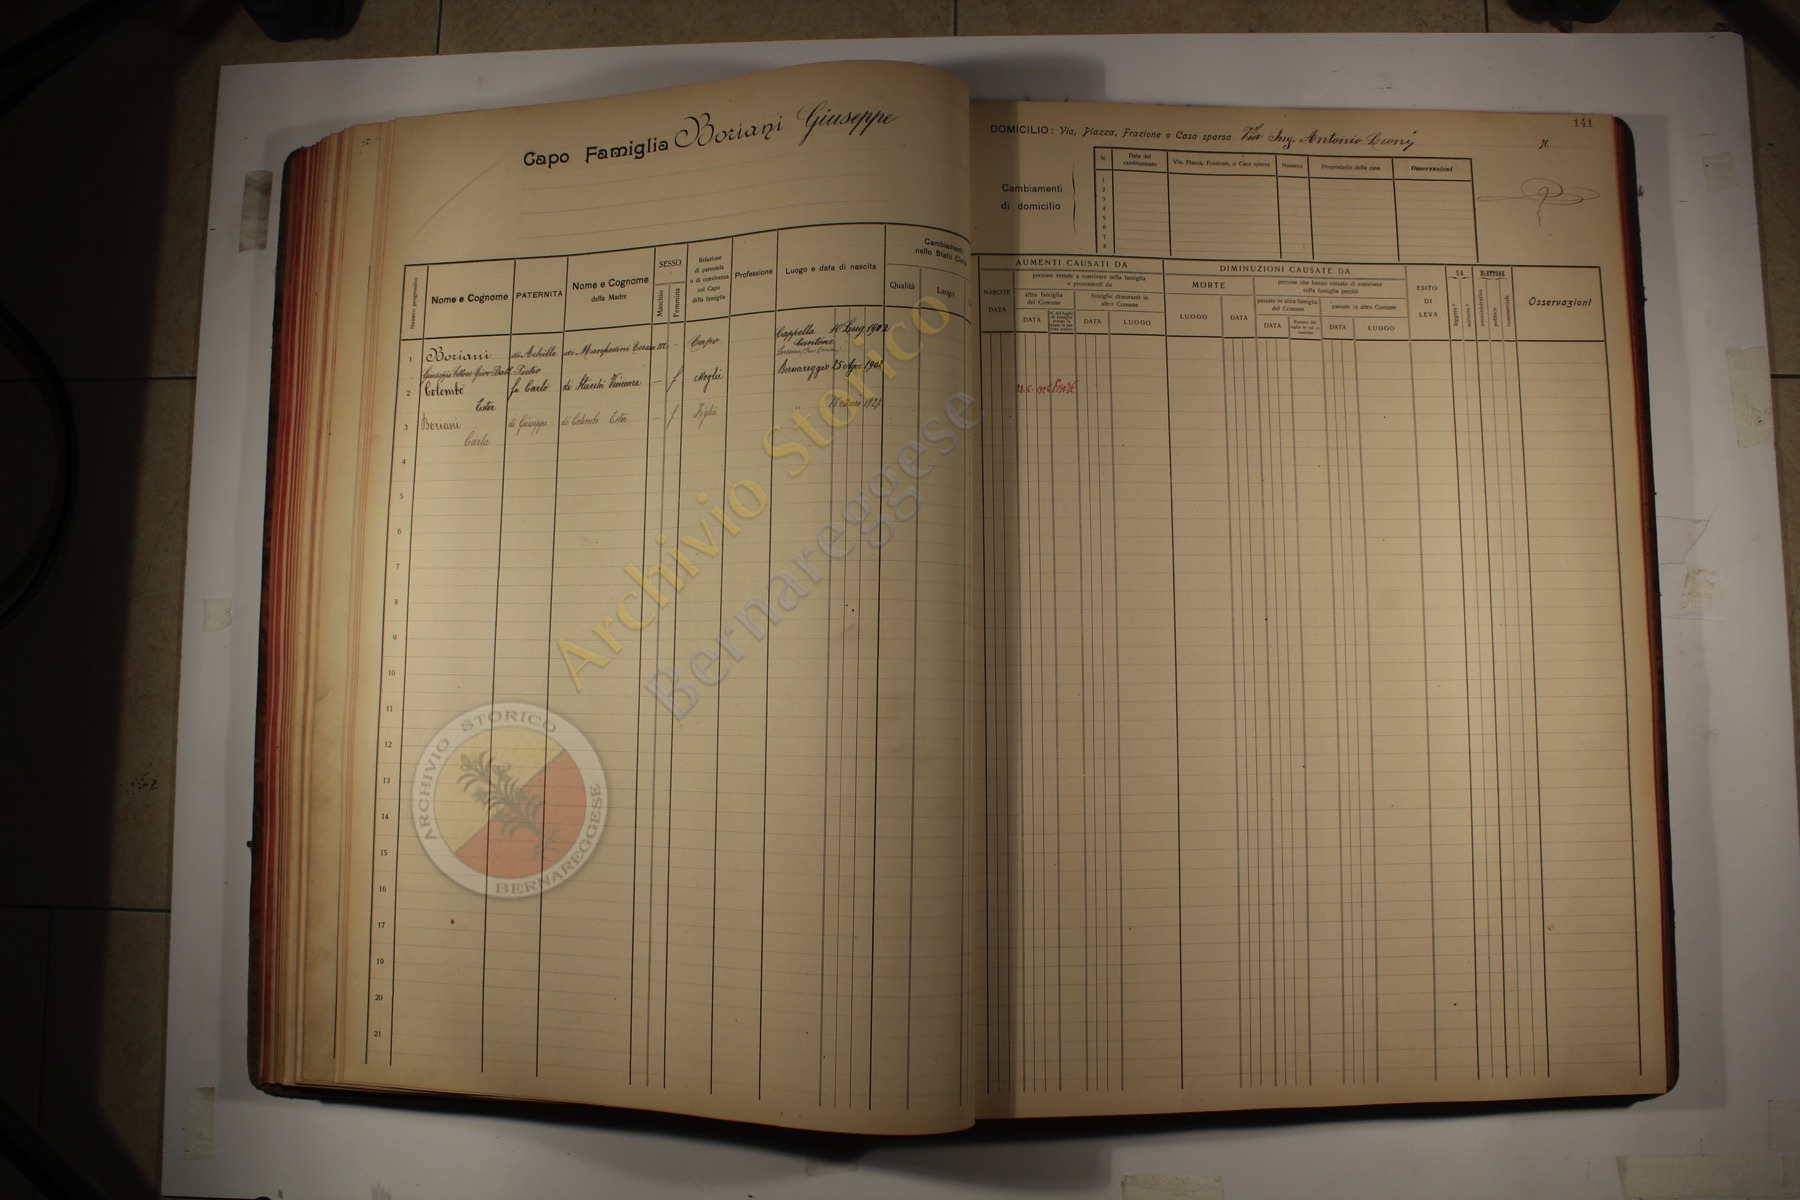 Capo Famiglia Boriani Giuseppe
141
DOMICILIO: Via, Piazza, Frazione o Casa sparsa Via Ing. Antonio
N.
Cambiamenti
di domicilio
N. Data del cambiamento Via, Piazza, Frazione, o Casa sparsa Numero Proprietario della casa Osservazioni
1
2
3
4
5
6
7
8
Numero progressivo
Nome e Cognome
PATERNITÀ
Nome e Cognome
della Madre
SESSO
Maschio
Femmina
Relazione
di parentela
o di convivenza
col Capo
della famiglia
Professione
Luogo e data di nascita
Cambiamenti
nello Stato Civile
Qualità
Luogo
AUMENTI CAUSATI DA
NASCITE
DATA
persone venute a convivere nella famiglia
e provenienti da
altra famiglia
del Comune
DATA
famiglie dimoranti in
altro Comune
DATA
LUOGO
DIMINUZIONI CAUSATE DA
MORTE
LUOGO
DATA
persone che hanno cessato di convivere
colla famiglia perchè
passate in altra famiglia
del Comune
DATA
passate in altro Comune
DATA
LUOGO
ESITO
DI
LEVA
SA
leggere?
scrivere?
ELETTORE
amministrativo
politico
commerciale
Osservazioni
1 Boriani di Achille di Manfredini m. - Capo Cappella 1902
Cantone
Pietro
2 Colombo fu Carlo di Vincenza - f Moglie Bernareggio 25
Ester
3 Boriani di Giuseppe di Colombo Ester - f Figlia
Carla
4
5
6
7
8
9
10
11
12
13
14
15
16
17
18
19
20
21
Archivio Storico
Bernareggese
ARCHIVIO STORICO
BERNAREGGESE